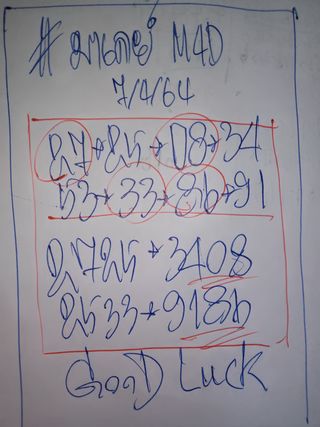 # มาเลย์ M4D
7/4/64
27+25+08+34
53+33+86+91
2725+3408
2533+9186
GOOD LUCK